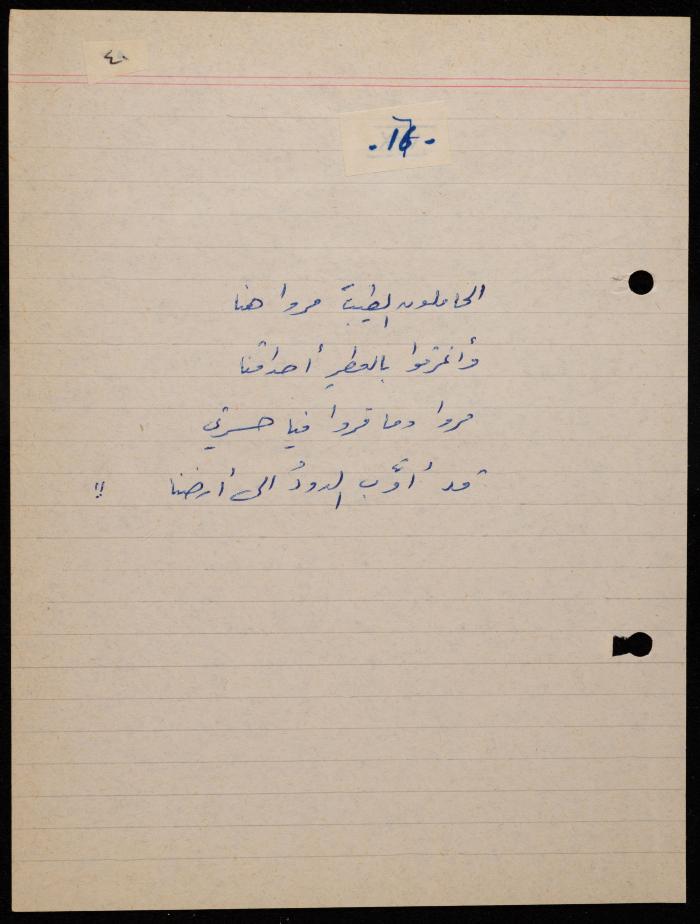 ٤٠
الحاملون الطيبَ مروا هنا
وأغرقوا بالعطرِ أحداقنا
مروا وما قروا فيا حسرتي
قد أوَّب الدودُ الى أرضنا !!